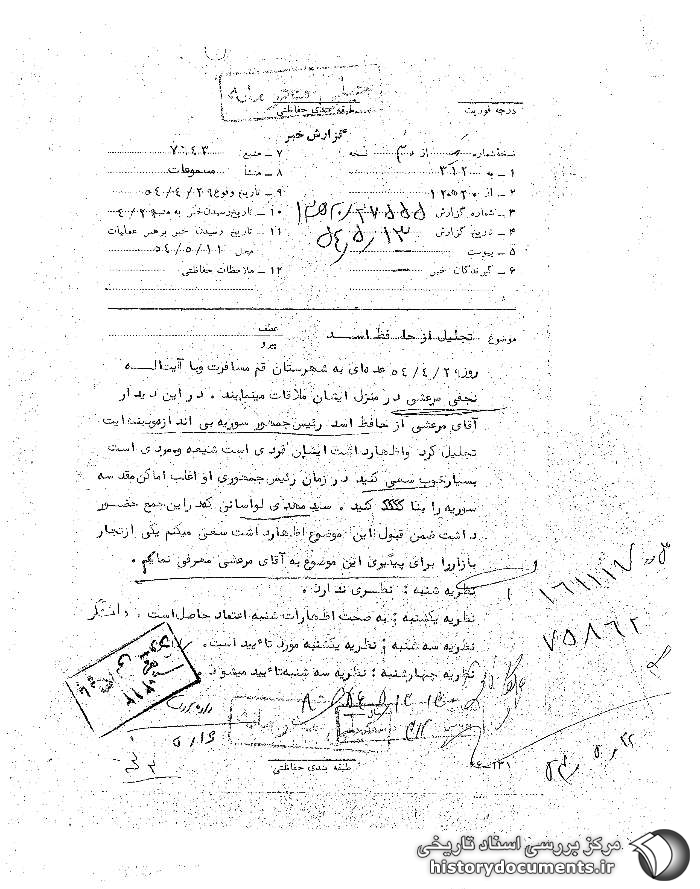 درجه فوریت
طبقه بندی حفاظتی
گزارش خبر
نسخه شماره از نسخه
۱ ـ به ۳۱۲
۲ ـ از ۱۲ ه‍ ۲۰
۳ ـ شماره گزارش
۴ ـ تاریخ گزارش ۵۴٫۵٫۱۳
۵ ـ پیوست
۶ ـ گیرندگان خبر
۷ ـ منبع ۷۰۴۳
۸ ـ منشأ مسموعات
۹ ـ تاریخ وقوع ۵۴/۴/۲۹
۱۰ ـ تاریخ رسیدن خبر به منبع
۱۱ ـ تاریخ رسیدن خبر برهبر عملیات
محل ۵۴/۰۵/۱۱
۱۲ ـ ملاحظات حفاظتی
موضوع تجلیل از حافظ اسد
عطف
پیرو
روز ۵۴/۴/۲۹ عده‌ای به شهرستان قم مسافرت وبا آیت‌اله
نجفی مرعشی در منزل ایشان ملاقات مینمایند . در این دیدار
آقای مرعشی از حافظ اسد رئیس جمهور سوریه بی اندازه
تجلیل کرد واظهارداشت ایشان فردی است شیعه ومردی است
بسیارخوب سعی کنید در زمان رئیس جمهوری او اغلب اماکن مقدسه
سوریه را بنا کنید . سید مهدی لواسانی که در این جمع حضور
داشت ضمن قبول این موضوع اظهارداشت سعی میکنم یکی از تجار
بازاررا برای پیگیری این موضوع به آقای مرعشی معرفی نمایم .
نظریه شنبه : نظری ندارد .
نظریه یکشنبه : به صحت اظهارات شنبه اعتماد حاصل است .
نظریه سه شنبه : نظریه یکشنبه مورد تائید است .
نظریه چهارشنبه : نظریه سه شنبه تائید میشود
۱۶۱۱۱۷
۷۵۸۶۲
۳۱۲
۵٫۱۶
طبقه بندی حفاظتی
مرکز بررسی اسناد تاریخی
historydocuments.ir